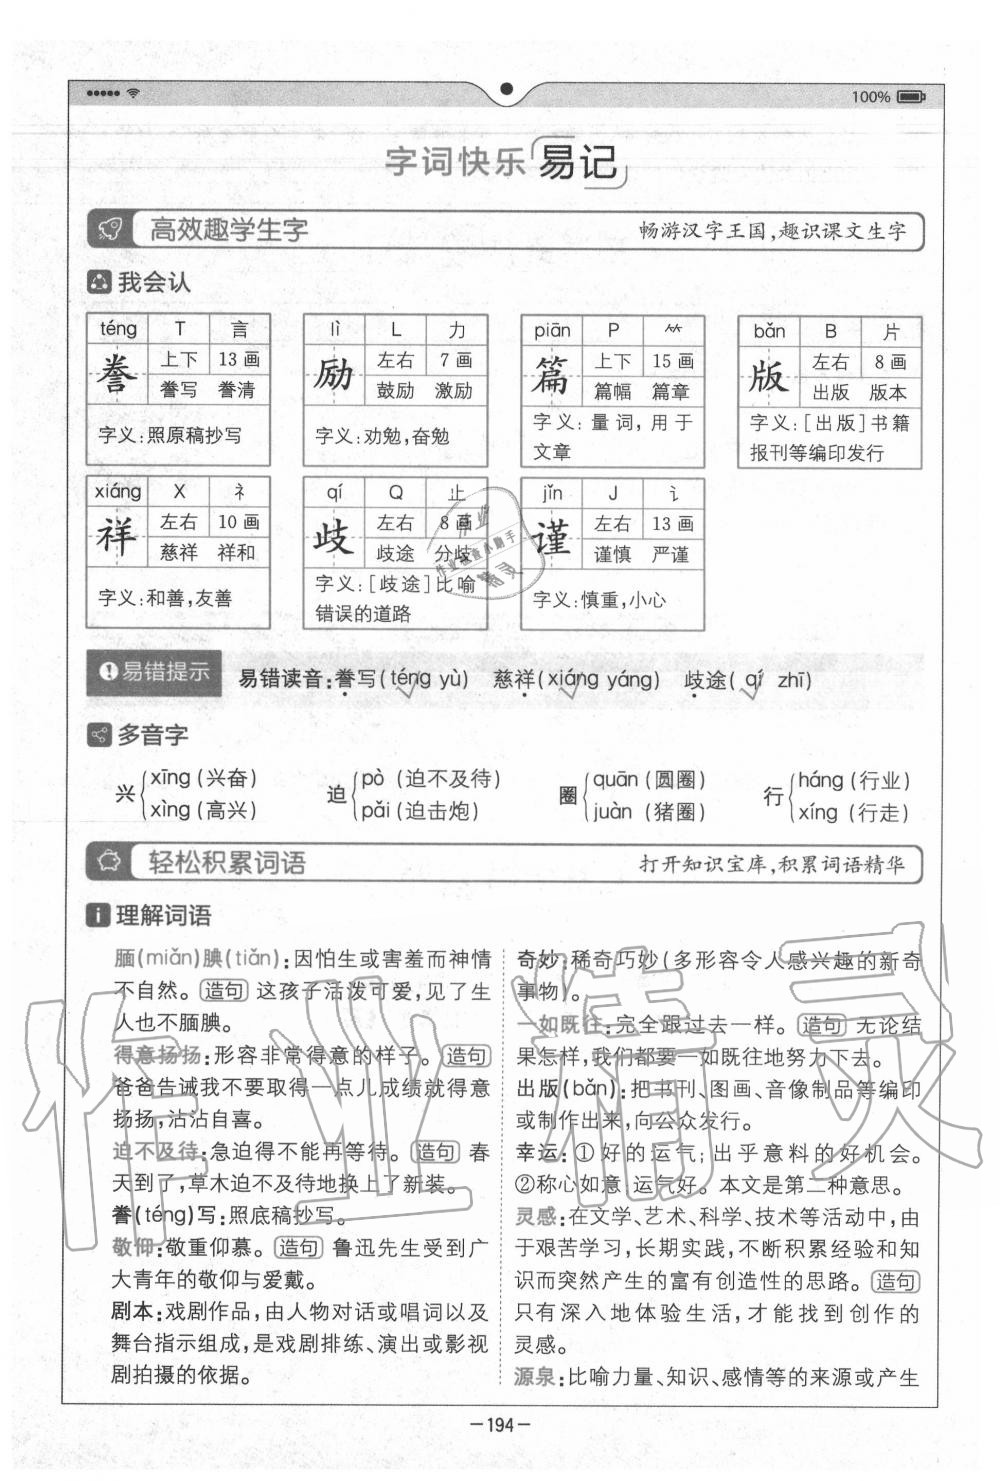 100%
字词快乐易记
高效趣学生字 畅游汉字王国,趣识课文生字
我会认
téng T 言
誊 上下 13画
誊写 誊清
字义:照原稿抄写
lì L 力
励 左右 7画
鼓励 激励
字义:劝勉,奋勉
piān P ⺮
篇 上下 15画
篇幅 篇章
字义:量词,用于
文章
bǎn B 片
版 左右 8画
出版 版本
字义:[出版]书籍
报刊等编印发行
xiáng X 礻
祥 左右 10画
慈祥 祥和
字义:和善,友善
qí Q 止
歧 左右 8画
歧途 分歧
字义:[歧途]比喻
错误的道路
jǐn J 讠
谨 左右 13画
谨慎 严谨
字义:慎重,小心
易错提示 易错读音:誊写(téng yù) 慈祥(xiáng yáng) 歧途(qí zhī)
多音字
兴 xīng(兴奋) xìng(高兴)
迫 pò(迫不及待) pǎi(迫击炮)
圈 quān(圆圈) juàn(猪圈)
行 háng(行业) xíng(行走)
轻松积累词语 打开知识宝库,积累词语精华
理解词语
腼(miǎn)腆(tiǎn):因怕生或害羞而神情
不自然。造句 这孩子活泼可爱,见了生
人也不腼腆。
得意扬扬:形容非常得意的样子。造句
爸爸告诫我不要取得一点儿成绩就得意
扬扬,沾沾自喜。
迫不及待:急迫得不能再等待。造句 春
天到了,草木迫不及待地换上了新装。
誊(téng)写:照底稿抄写。
敬仰:敬重仰慕。造句 鲁迅先生受到广
大青年的敬仰与爱戴。
剧本:戏剧作品,由人物对话或唱词以及
舞台指示组成,是戏剧排练、演出或影视
剧拍摄的依据。
奇妙:稀奇巧妙(多形容令人感兴趣的新奇
事物)。
一如既往:完全跟过去一样。造句 无论结
果怎样,我们都要一如既往地努力下去。
出版(bǎn):把书刊、图画、音像制品等编印
或制作出来,向公众发行。
幸运:①好的运气;出乎意料的好机会。
②称心如意;运气好。本文是第二种意思。
灵感:在文学、艺术、科学、技术等活动中,由
于艰苦学习,长期实践,不断积累经验和知
识而突然产生的富有创造性的思路。造句
只有深入地体验生活,才能找到创作的
灵感。
源泉:比喻力量、知识、感情等的来源或产生
作业精灵
—194—